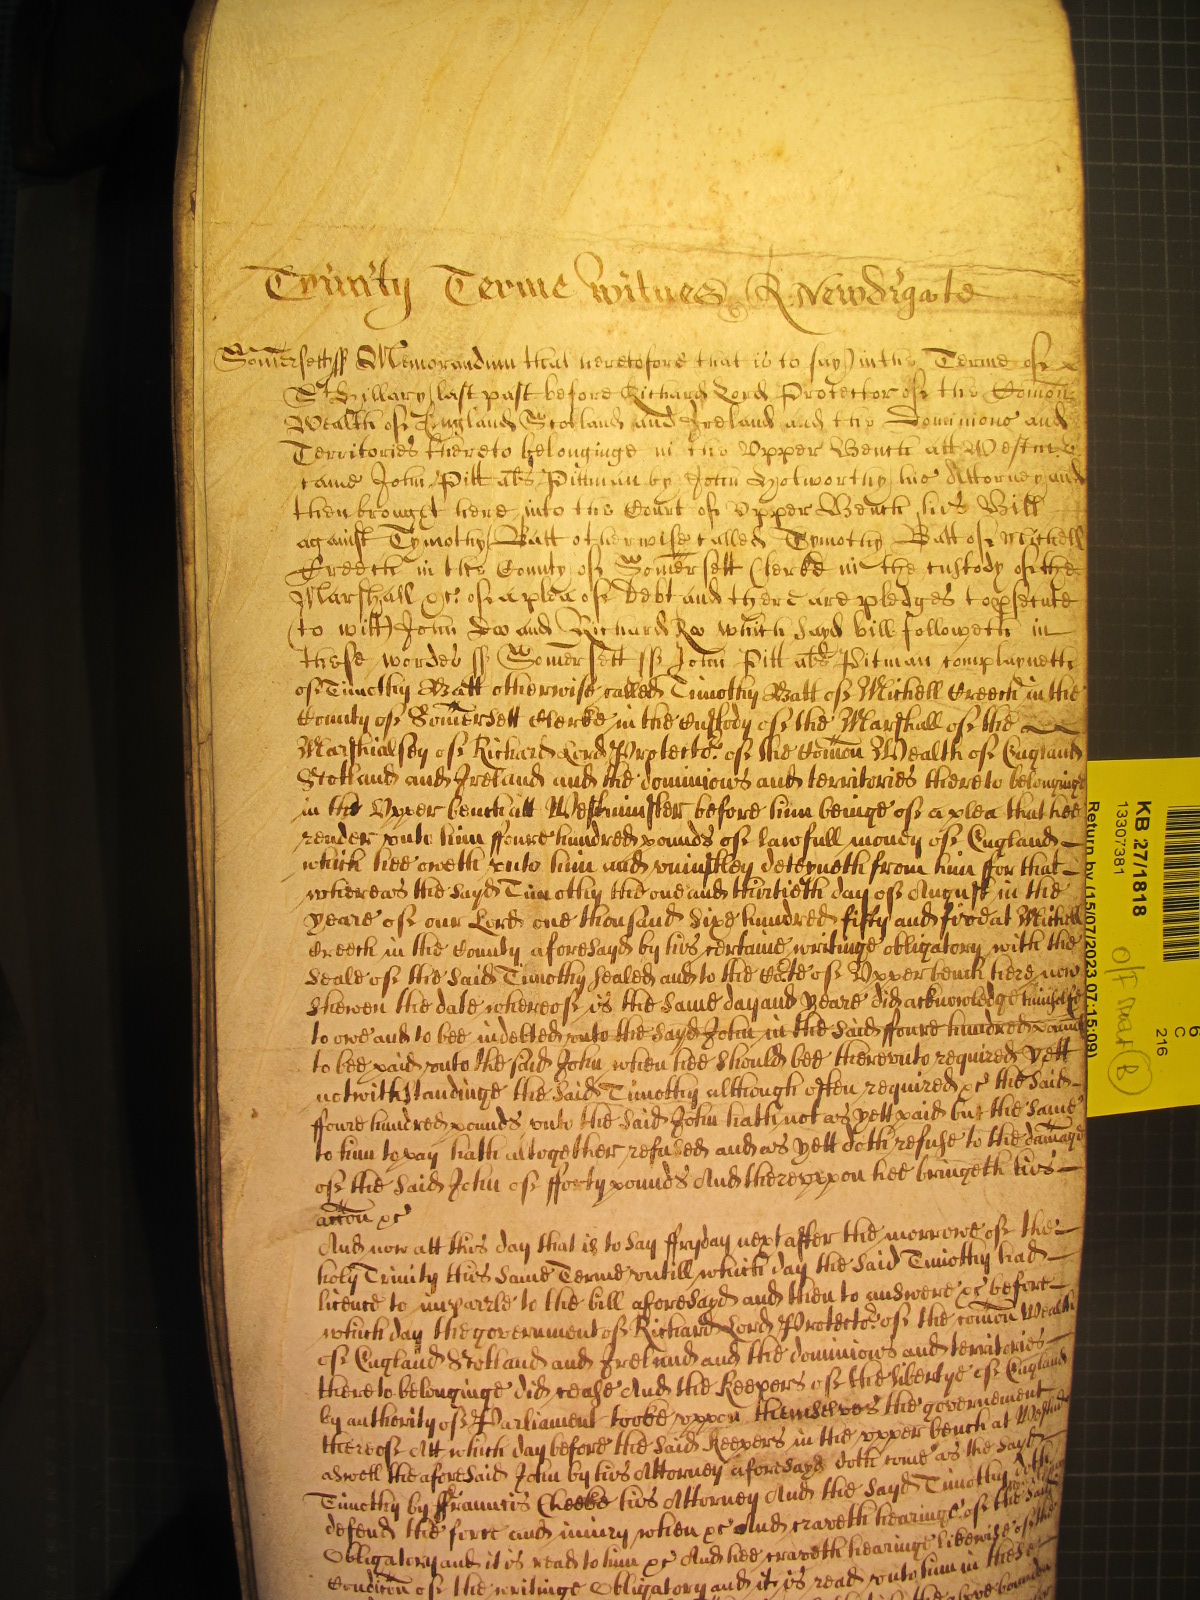 Trinity Terme witnes R Newdigate
Somersett ss Memorandum that heretofore that is to say in the Terme of
St Hillary last past before Richard Lord Protector of the Comon
Wealth of England Scotland and Ireland and the Dominions and
Territories thereto belonginge in the Upper Bench att Westmr
came John Pitt als Pittman by John Holworthy his Attorney and
then brought here into the Court of Upper Bench his Bill
against Tymothy Batt otherwise called Tymothy Batt of Mitchell
Creech in the County of Somersett Clerke in the custody of the
Marshall &c of a plea of Debt and there are pledges to psecute
(to witt) John Doo and Richard Roo which sayd bill followeth in
these wordes ss Somersett ss John Pitt als Pitman complayneth
of Timothy Batt otherwise called Timothy Batt of Michell Creech in the
County of Somersett Clerke in the Custody of the Marshall of the
Marshialsey of Richard Lord Protector of the Comon Wealth of England
Scotland and Ireland and the dominions and territories thereto belonginge
in the Upper bench att Westminster before him beinge of a plea that hee
render unto him ffoure hundred pounds of lawfull money of England
which hee oweth unto him and uniustley deteyneth from him ffor that
whereas the sayd Timothy the one and thirtieth day of August in the
yeare of our Lord one thousand sixe hundred fifty and five at Michell
Creech in the County aforesayd by his certaine writinge obligatory with the
Seale of the said Timothy sealed and to the Cte of Upper bench here now
shewen the date whereof is the same day and yeare did acknowledge himselfe
to owe and to bee indebted unto the sayd John in the said ffoure hundred pounds
to bee paid unto the said John when hee should bee thereunto required yett
notwithstandinge the said Timothy although often required &c the said
ffoure hundred pounds unto the said John hath not as yett paid but the same
to him to pay hath altogether refused and as yett doth refuse to the damage
of the said John of fforty pounds And thereuppon hee bringeth his
accon &c
And now att this day that is to say ffryday next after the morrowe of the
holy Trinity this same Terme untill which day the said Timothy had
licence to imparle to the bill aforesayd and then to answere &c before
which day the government of Richard Lord Protector of the comon Wealth
of England Scotland and Ireland and the dominions and territories
thereto belonginge did cease And the Keepers of the libertye of England
by authority of Parliament tooke uppon themselves the governement
thereof Att which day before the said Keepers in the upper bench at Westmr
aswell the aforesaid John by his Attorney aforesayd doth come as the sayd
Timothy by ffrauncis Cheeke his Attorney And the sayd Timothy doth
defend the force and iniury when &c And craveth hearinge of the said
Obligatory and it is read to him &c And hee craveth hearinge likewise of the
Condicon of the writinge Obligatory and it is read unto him in these
the above bounden
KB 27/1818
13307381
Return by (15/07/2023 07:15:09)
6
C
216
B